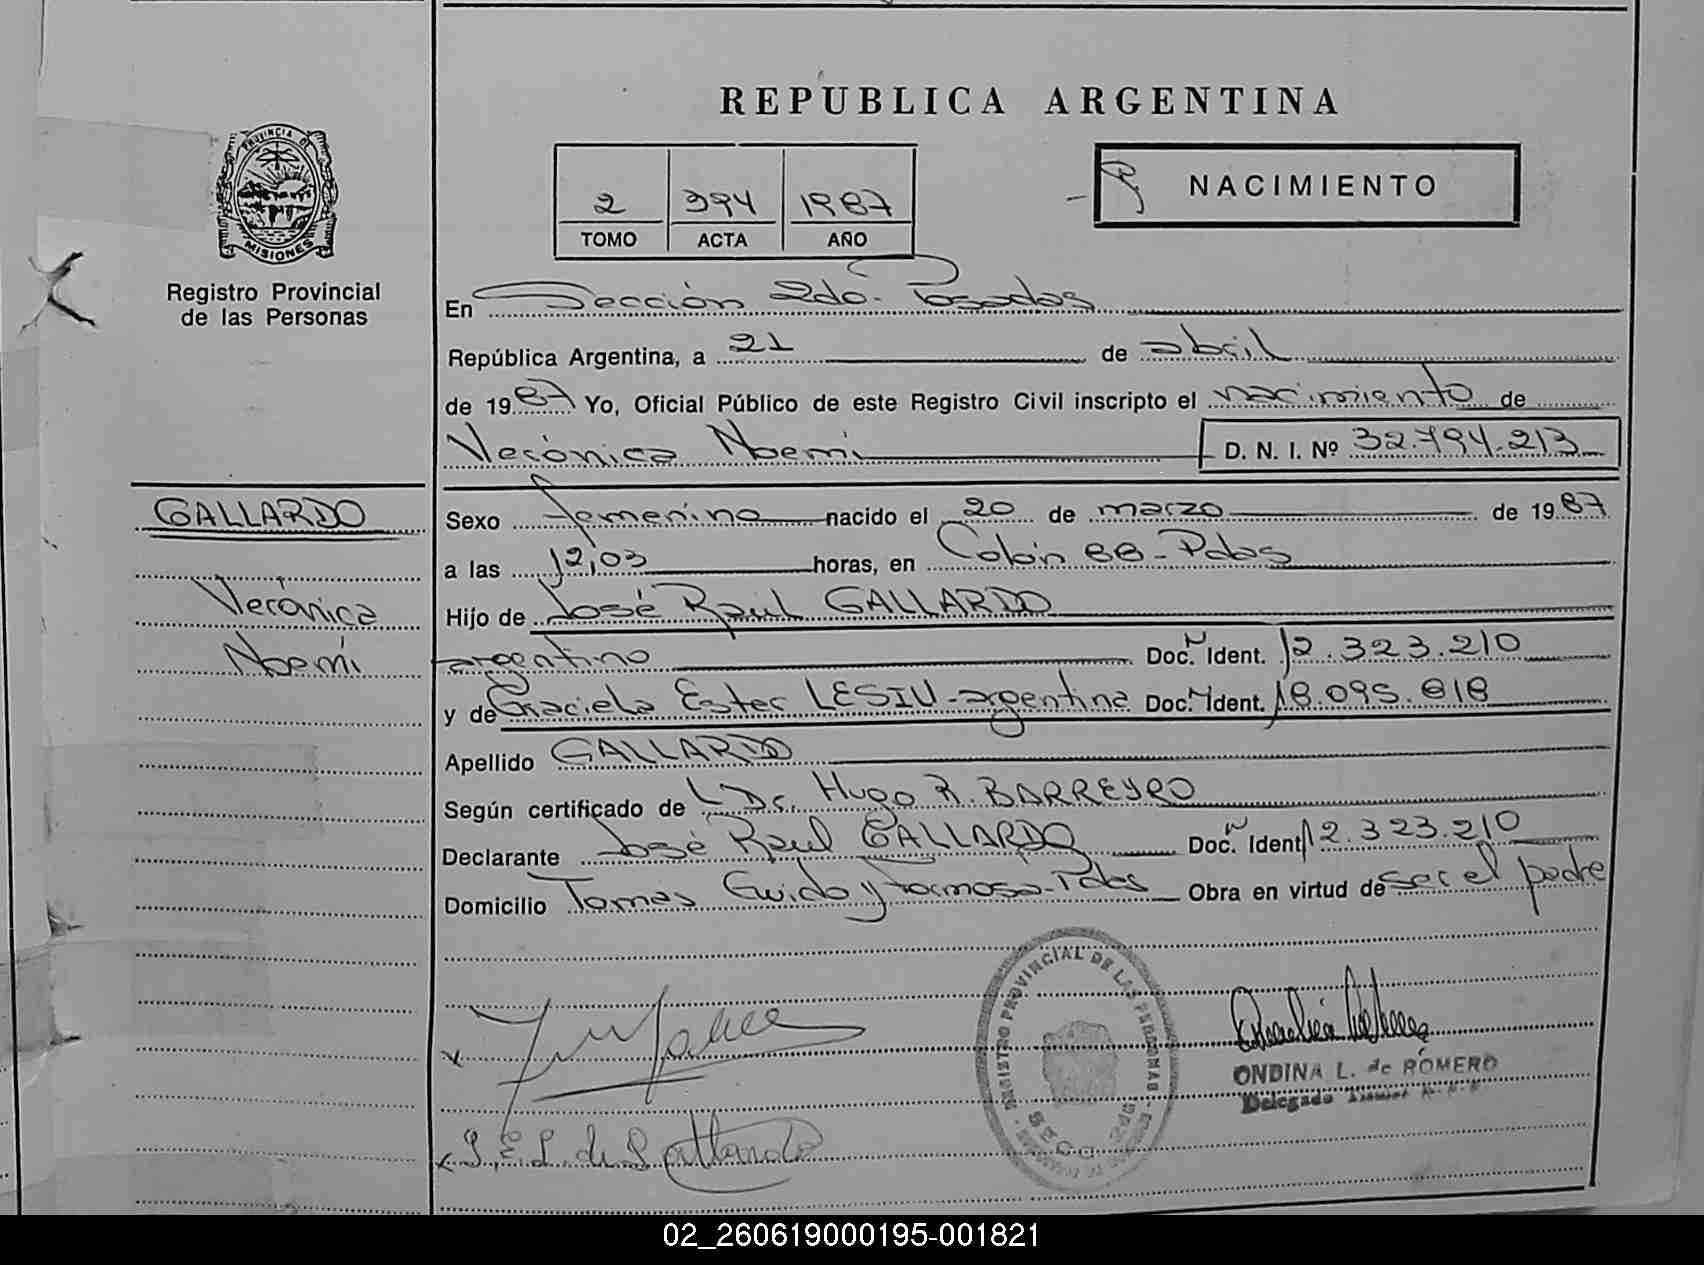 REPUBLICA ARGENTINA
PROVINCIA DE
MISIONES
Registro Provincial
de las Personas
2 394 1987
TOMO ACTA AÑO
NACIMIENTO
En Sección 2do. Posadas
República Argentina, a 21 de abril
de 1987 Yo, Oficial Público de este Registro Civil inscripto el nacimiento de
Verónica Noemi D. N. I. Nº 32.794.213
GALLARDO
Verónica
Noemí
Sexo femenino nacido el 20 de marzo de 1987
a las 12,03 horas, en Colón BB-Pdas
Hijo de José Raúl GALLARDO
argentino Doc. N Ident. 12.323.210
y de Graciela Ester LESIU-argentina Doc. N Ident. 18.095.818
Apellido GALLARDO
Según certificado de Dr. Hugo R. BARREYRO
Declarante José Raul GALLARDO Doc. N Ident 12.323.210
Domicilio Tomas Guido y Formosa-Pdas Obra en virtud de ser el padre
REGISTRO PROVINCIAL DE LAS PERSONAS
ONDINA L. de ROMERO
Delegado
G.E.L. de Gallardo
02_260619000195-001821